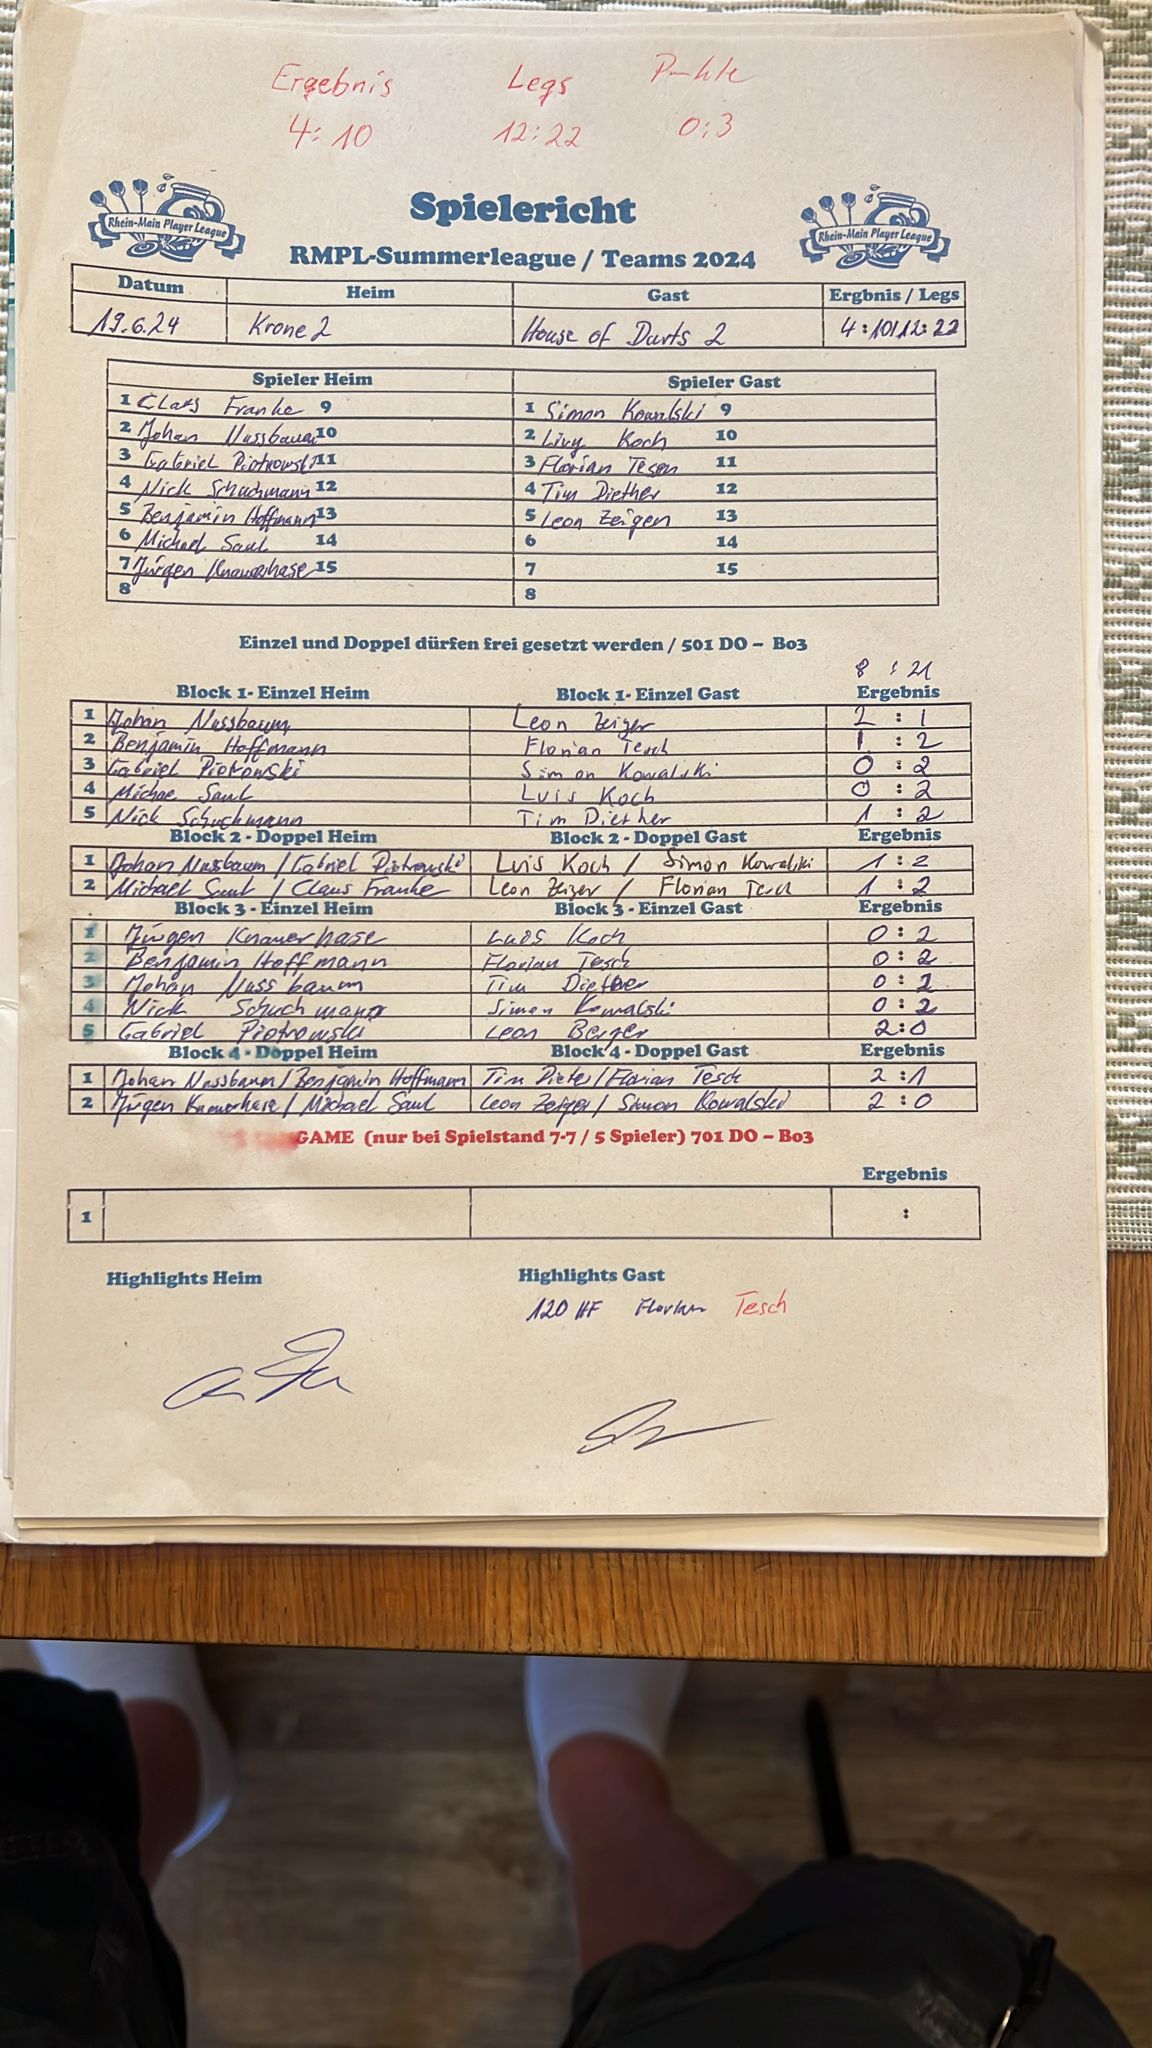 Ergebnis Legs Punkte
4:10 12:22 0:3
Rhein-Main Player League
Spielericht
Rhein-Main Player League
RMPL-Summerleague / Teams 2024
Datum Heim Gast Ergbnis / Legs
19.6.24 Krone 2 House of Darts 2 4:10/12:22
Spieler Heim Spieler Gast
1 Claus Franke 9 1 Simon Kowalski 9
2 Johan Nussbaum 10 2 Koch 10
3 Gabriel Piotrowski 11 3 Florian 11
4 Nick Schuchmann 12 4 Tim Diether 12
5 Benjamin Hoffmann 13 5 Leon 13
6 Michael Saul 14 6 14
7 Jürgen Knauerhase 15 7 15
8 8
Einzel und Doppel dürfen frei gesetzt werden / 501 DO – Bo3
8 : 21
Block 1- Einzel Heim Block 1- Einzel Gast Ergebnis
1 Johan Nussbaum Leon Zeiger 2 : 1
2 Benjamin Hoffmann Florian Tesch 1 : 2
3 Gabriel Piotrowski Simon Kowalski 0 : 2
4 Michae Saul Luis Koch 0 : 2
5 Nick Schuchmann Tim Diether 1 : 2
Block 2 - Doppel Heim Block 2 - Doppel Gast Ergebnis
1 Johan Nussbaum / Gabriel Piotrowski Luis Koch / Simon Kowalski 1 : 2
2 Michael Saul / Claus Franke Leon Zeiger / Florian Tesch 1 : 2
Block 3 - Einzel Heim Block 3 - Einzel Gast Ergebnis
1 Jürgen Knauerhase Luis Koch 0 : 2
2 Benjamin Hoffmann Florian Tesch 0 : 2
3 Johan Nussbaum Tim Diether 0 : 2
4 Nick Schuchmann Simon Kowalski 0 : 2
5 Gabriel Piotrowski Leon Berger 2:0
Block 4 - Doppel Heim Block 4 - Doppel Gast Ergebnis
1 Johan Nussbaum / Benjamin Hoffmann Tim Diete / Florian Tesch 2 : 1
2 Jürgen Knauerhase / Michael Saul Leon Zeiger / Simon Kowalski 2 : 0
GAME (nur bei Spielstand 7-7 / 5 Spieler) 701 DO – Bo3
Ergebnis
1 :
Highlights Heim Highlights Gast
120 HF Florian Tesch